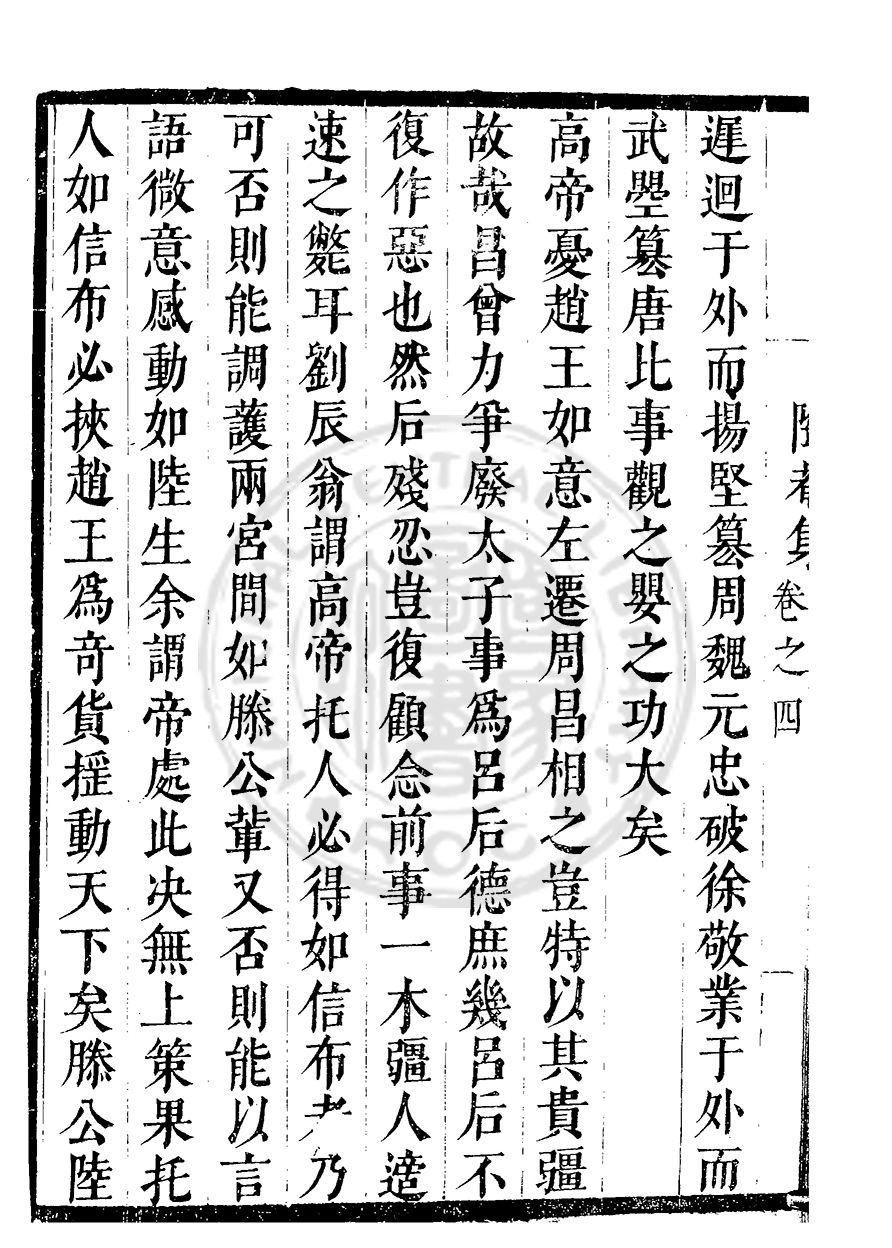 卷之四
遲迴于外而揚堅篡周魏元忠破徐敬業于外而
武曌篡唐比事觀之嬰之功大矣
高帝憂趙王如意左遷周昌相之豈特以其貴疆
故哉昌曾力爭廢太子事爲呂后德庶幾呂后不
復作惡也然后殘忍豈復顧念前事一木疆人適
速之斃耳劉辰翁謂高帝托人必得如信布者乃
可否則能調護兩宮間如滕公輩又否則能以言
語微意感動如陸生余謂帝處此决無上策果托
人如信布必挾趙王爲奇貨摇動天下矣滕公陸